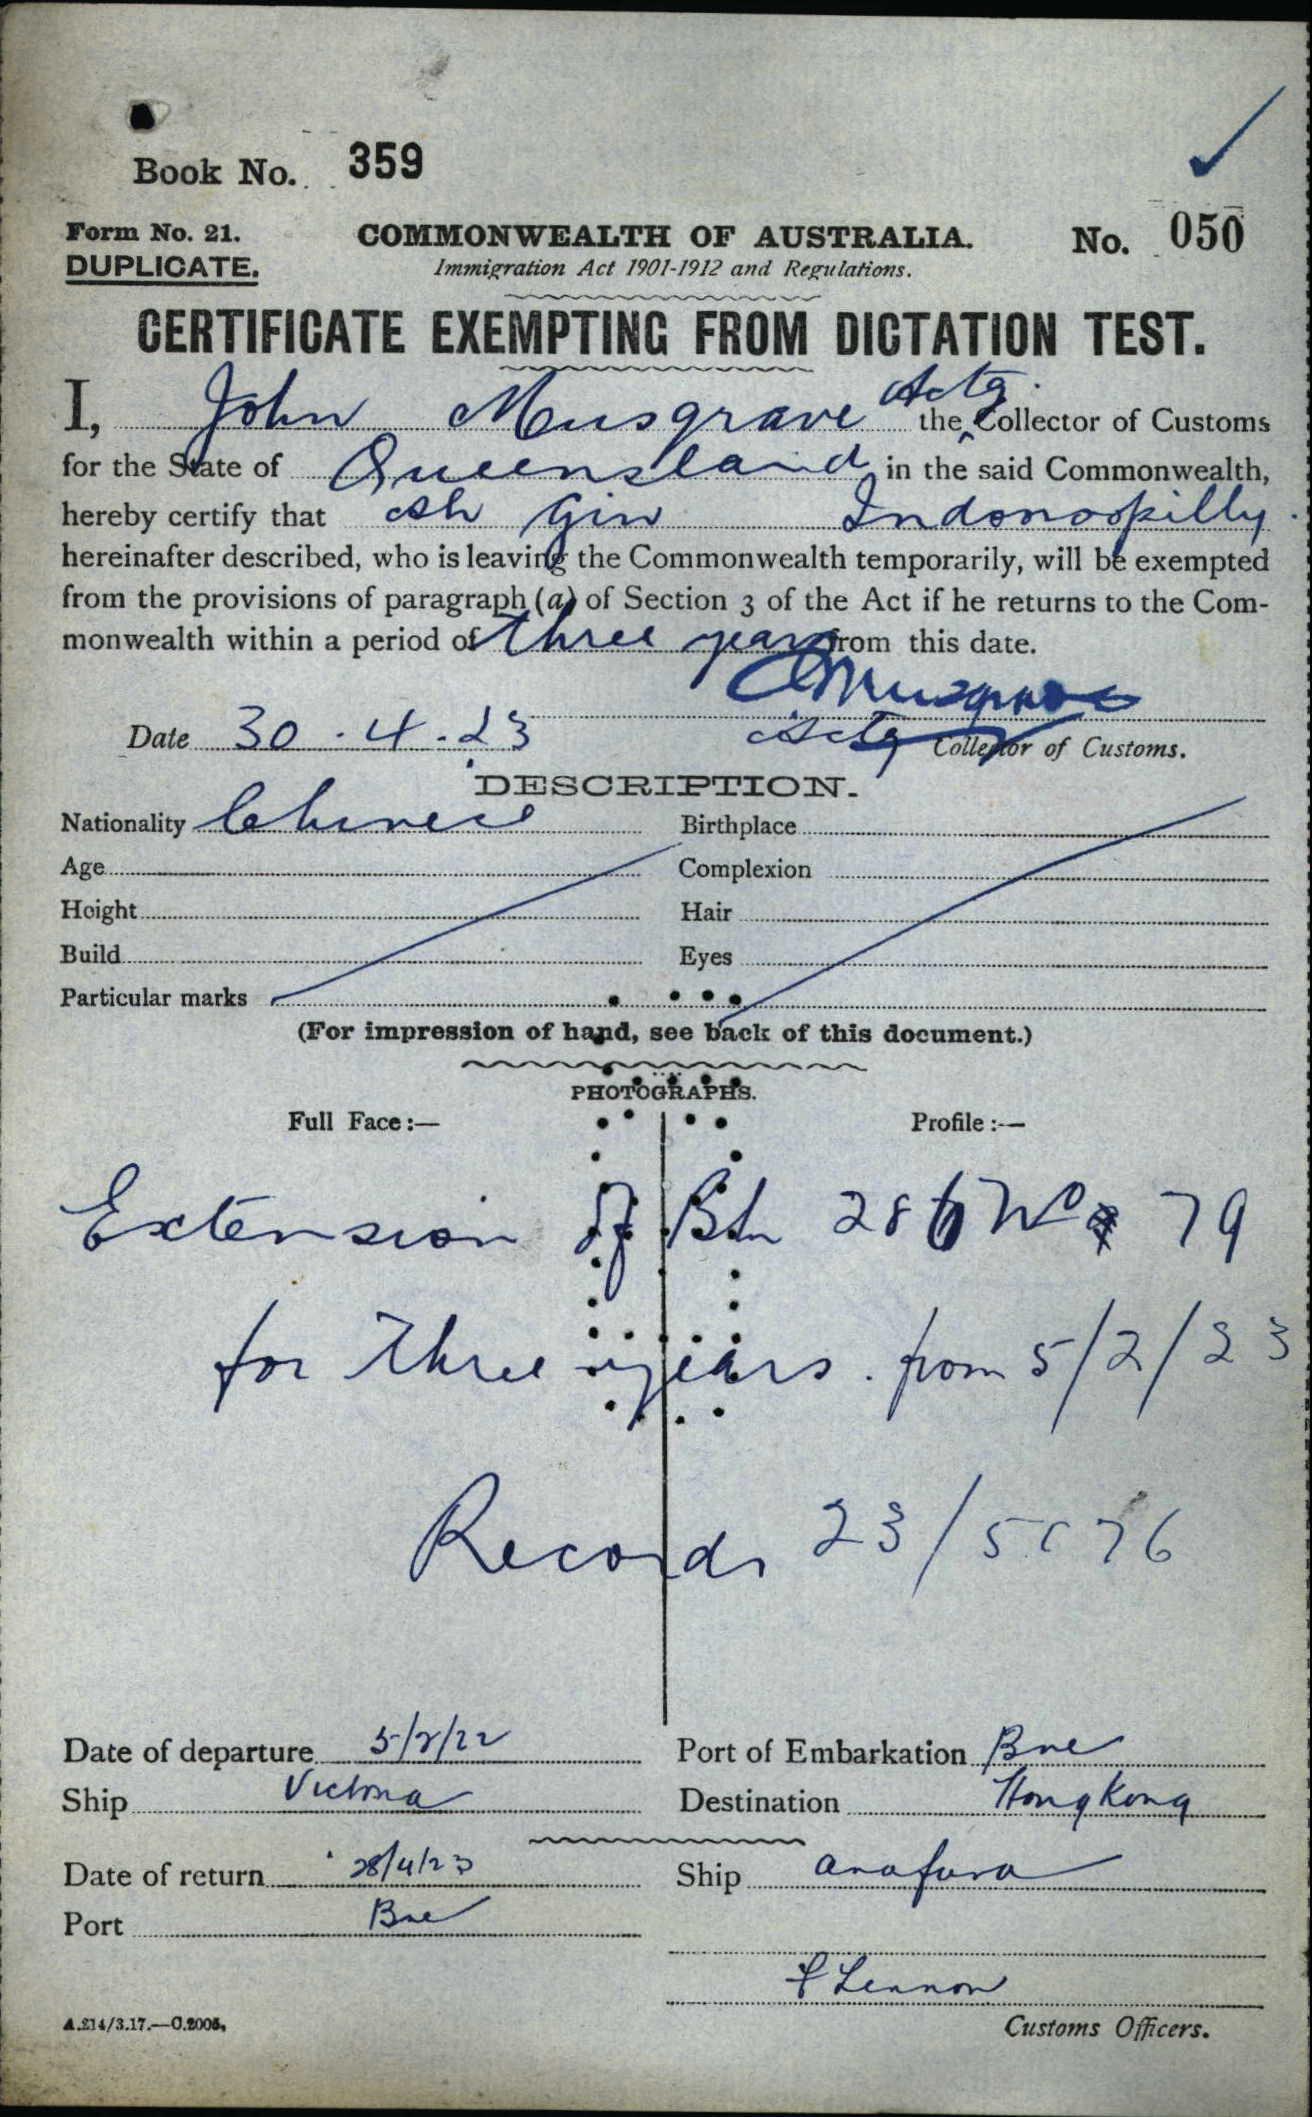 Book No. 359
Form No. 21. COMMONWEALTH OF AUSTRALIA. No. 050
DUPLICATE. Immigration Act 1901-1912 and Regulations.
CERTIFICATE EXEMPTING FROM DICTATION TEST.
I, John Musgrave the Actg. Collector of Customs
for the State of Queensland in the said Commonwealth,
hereby certify that Ah Gin Indooroopilly
hereinafter described, who is leaving the Commonwealth temporarily, will be exempted
from the provisions of paragraph (a) of Section 3 of the Act if he returns to the Com-
monwealth within a period of three years from this date.
Musgrave
Date 30.4.23 Actg Collector of Customs.
DESCRIPTION.
Nationality Chinese Birthplace
Age Complexion
Height Hair
Build Eyes
Particular marks
(For impression of hand, see back of this document.)
PHOTOGRAPHS.
Full Face:— Profile:—
Extension of Bk 286 No 79
for three years. from 5/2/23
Records 23/5076
Date of departure 5/2/22 Port of Embarkation Bne
Ship Victoria Destination Hong Kong
Date of return 28/4/23 Ship Arafura
Port Bne
F Lennon
A.214/3.17.—C.2005. Customs Officers.